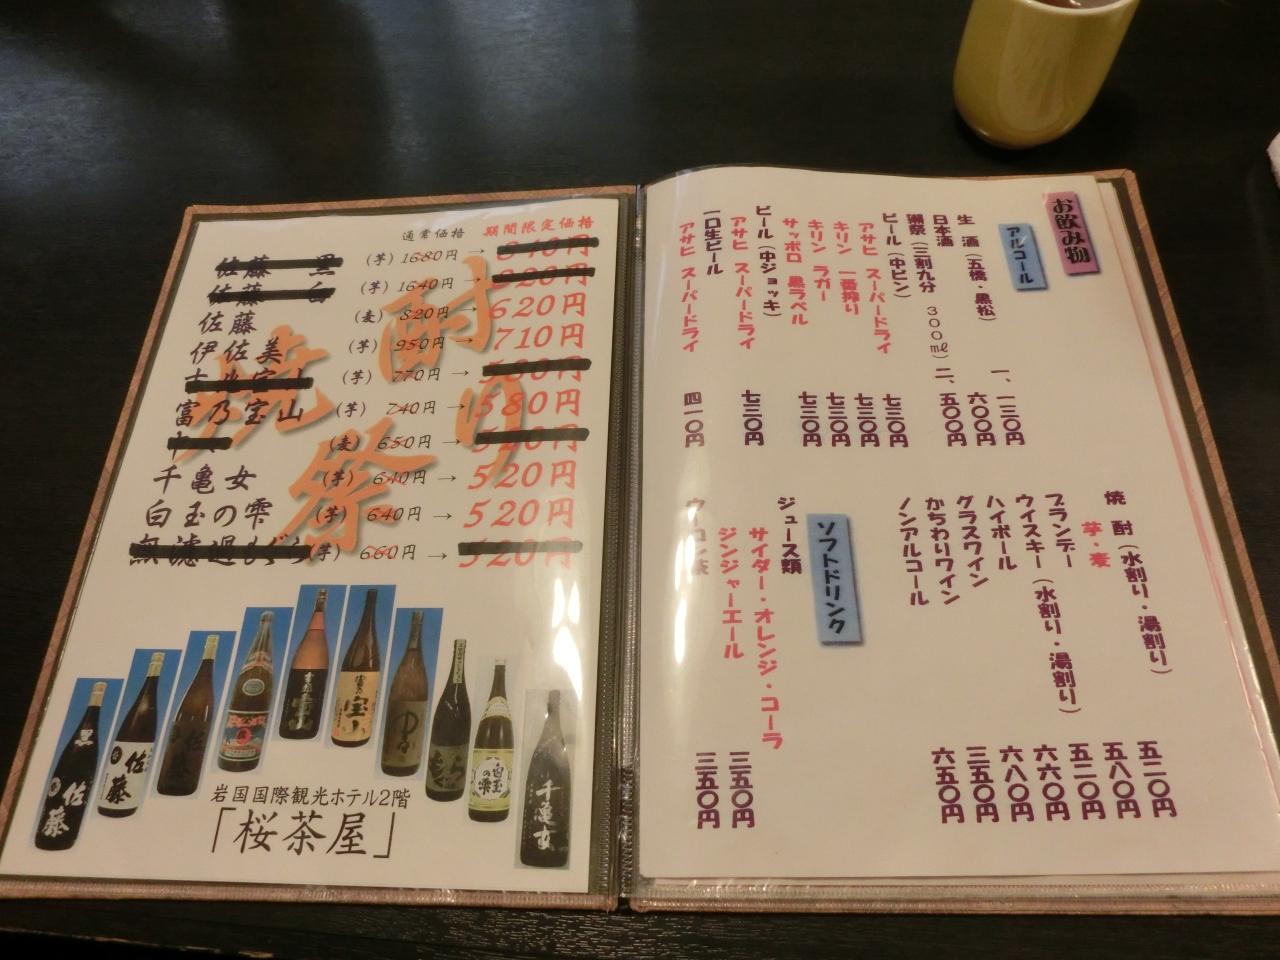 焼酎祭り
通常価格 期間限定価格
佐藤 黒 (芋) 1680円 → 840円
佐藤 白 (芋) 1640円 → 820円
佐藤 (麦) 820円 → 620円
伊佐美 (芋) 950円 → 710円
(芋) 770円 → 580円
富乃宝山 (芋) 740円 → 580円
(麦) 650円 → 520円
千亀女 (芋) 640円 → 520円
白玉の雫 (芋) 640円 → 520円
無濾過 (芋) 660円 → 520円
黒 佐藤
佐藤
佐
宝山
白玉の雫
千亀女
岩国国際観光ホテル2階
「桜茶屋」
お飲み物
アルコール
生 酒(五橋・黒松) 一、一三〇円
日本酒 六〇〇円
獺祭(三割九分 300㎖) 二、五〇〇円
ビール(中ビン)
アサヒ スーパードライ 七三〇円
キリン 一番搾り 七三〇円
キリン ラガー 七三〇円
サッポロ 黒ラベル 七三〇円
ビール(中ジョッキ)
アサヒ スーパードライ 七三〇円
一口生ビール
アサヒ スーパードライ 四一〇円
焼 酎(水割り・湯割り) 五二〇円
芋・麦
ブランデー 五八〇円
ウイスキー(水割り・湯割り) 五二〇円
ハイボール 六六〇円
グラスワイン 六八〇円
かちわりワイン 三五〇円
ノンアルコール 六五〇円
ソフトドリンク
ジュース類
サイダー・オレンジ・コーラ
ジンジャーエール 三五〇円
ウーロン茶 三五〇円